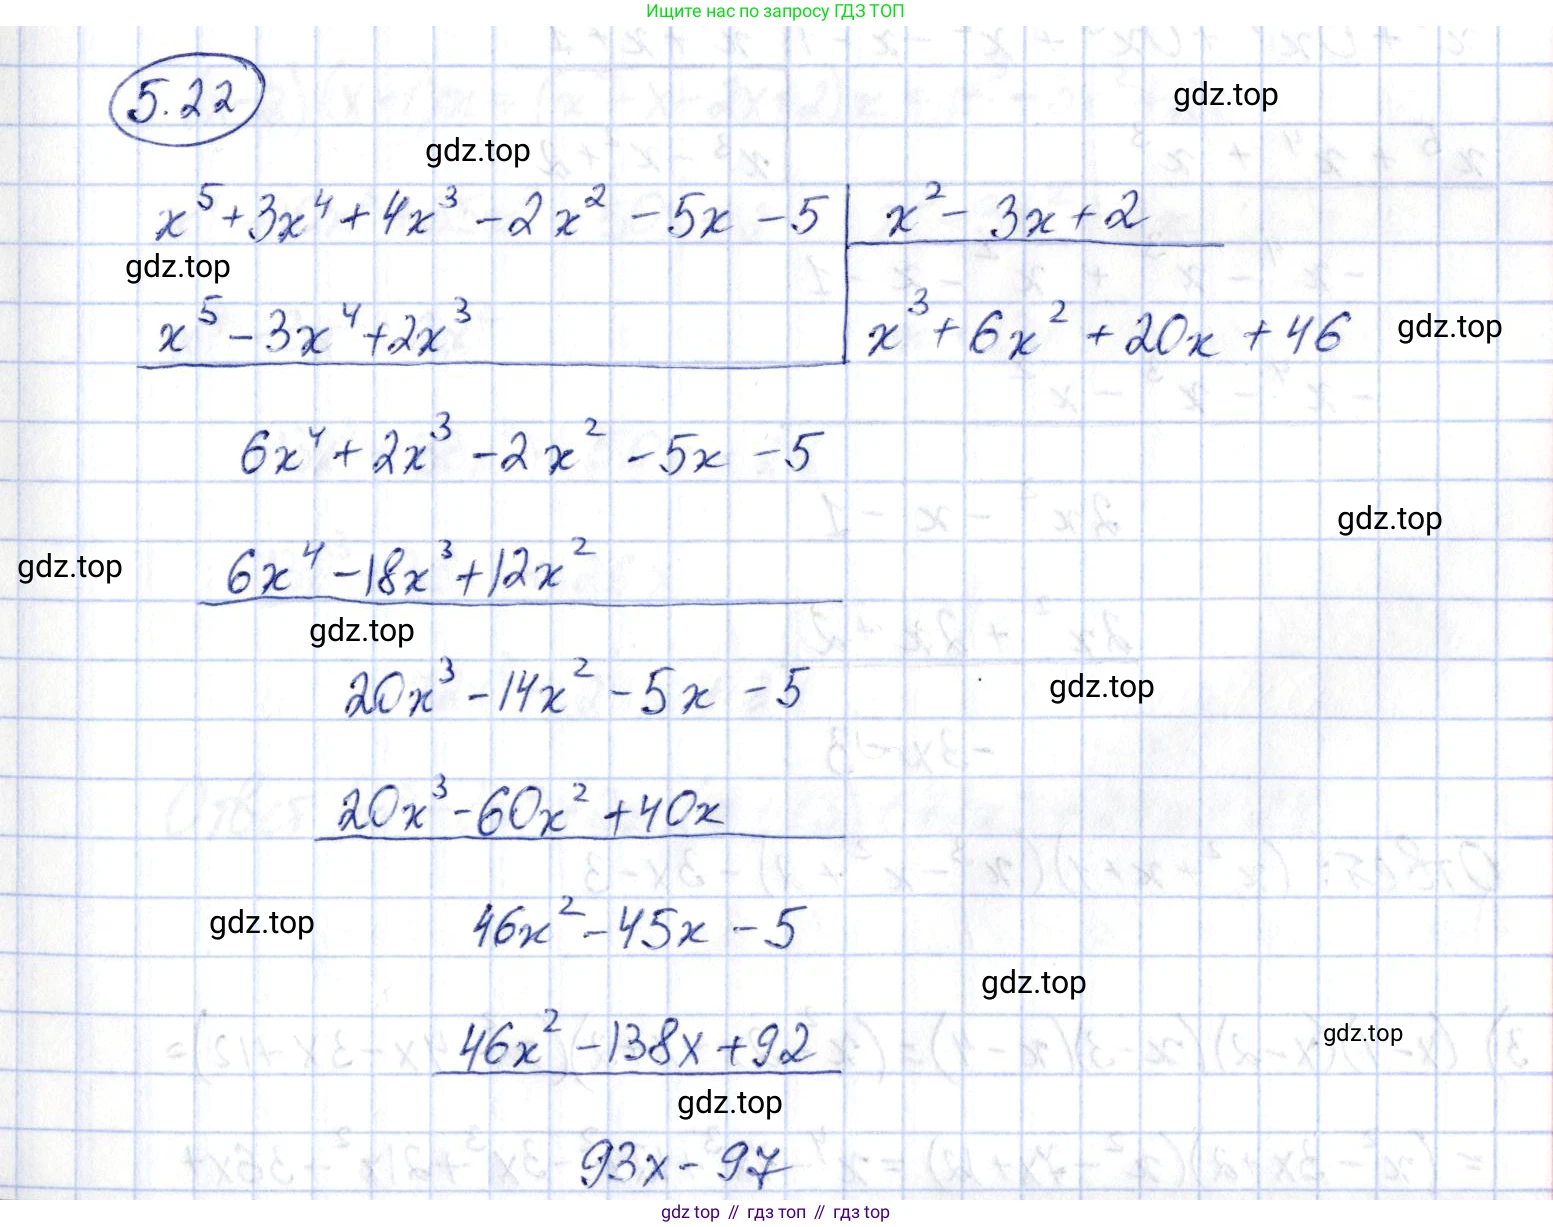 Ищите нас по запросу ГДЗ ТОП
5.22
gdz.top
gdz.top
x⁵+3x⁴+4x³-2x²-5x-5 | x²-3x+2
gdz.top
x⁵-3x⁴+2x³ x³+6x²+20x+46 gdz.top
6x⁴+2x³-2x²-5x-5
gdz.top
gdz.top 6x⁴-18x³+12x²
gdz.top
20x³-14x²-5x-5 gdz.top
20x³-60x²+40x
gdz.top 46x²-45x-5
gdz.top
46x²-138x+92 gdz.top
gdz.top
93x-97
gdz top // гдз топ // гдз top